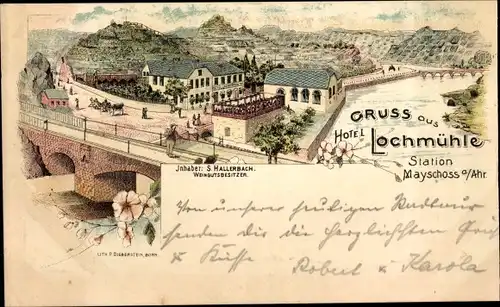 GRUSS aus
HOTEL Lochmühle
Station
Mayschoss a/Ahr.
Jnhaber: S. HALLERBACH.
WEINGUTSBESITZER.
Von unserer heutigen Radtour
senden dir die herzlichsten Grüße
& Küsse
Robert & Karola